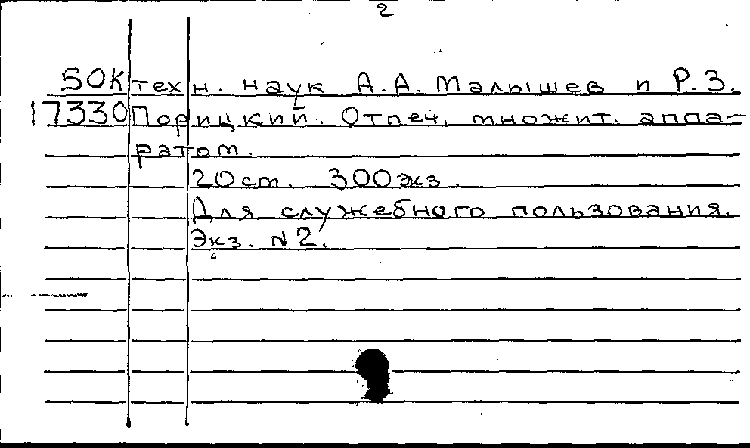 2
50К техн. наук А.А. Малышев и Р.З.
17330 Порицкий. Отпеч. множит. аппа-
ратом.
20см. 300экз.
Для служебного пользования.
Экз. №2.